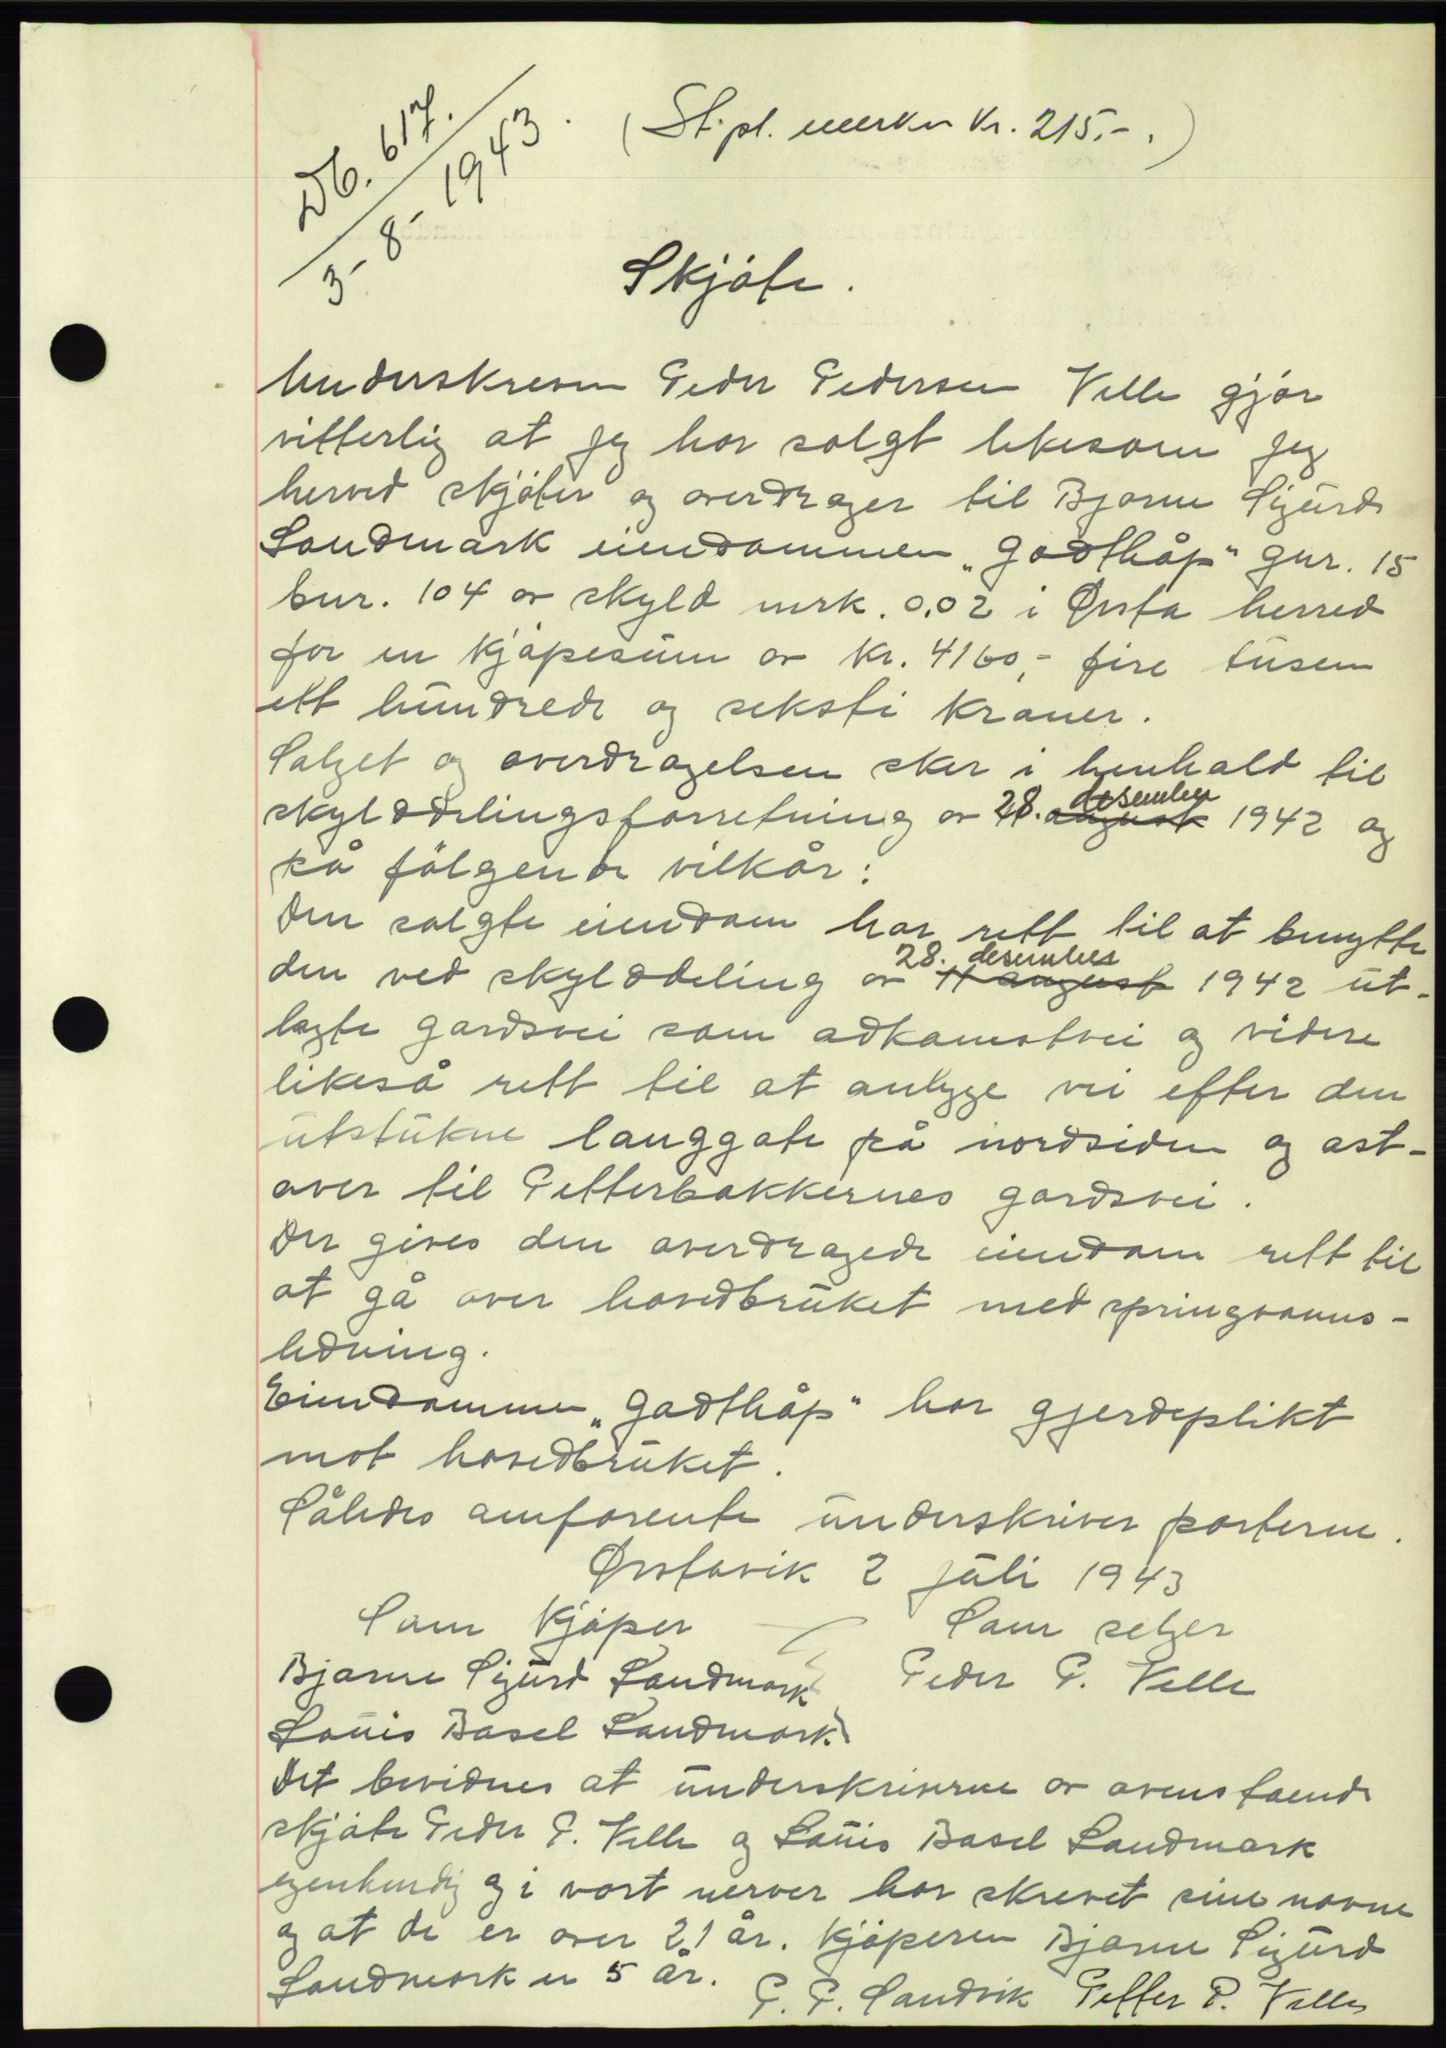 Db. 617.
3-8-1943.
(St.pl. merker Kr. 215.-.)
Skjøte.
Underskreven Peder Pedersen Velle gjør
vitterlig at jeg har solgt likesom jeg
herved skjøter og overdrager til Bjarne Sigurd
Landmark eiendommen "Godthåp" gnr. 15
bnr. 104 av skyld mrk. 0.02 i Ørsta herred
for en kjøpesum av kr. 4160,- fire tusen
ett hundrede og seksti kroner.
Salget og overdragelsen sker i henhold til
skylddelingsforretning av 28. desember 1942 og
på følgende vilkår:
Den solgte eiendom har rett til at benytte
den ved skylddeling av 28. desember 11 august 1942 ut-
lagte gardsvei som adkomstvei og videre
likeså rett til at anlegge vei efter den
utstukne langgate på nordsiden og øst-
over til Petterbakkernes gardsvei.
Der gives den overdragede eiendom rett til
at gå over hovedbruket med springvanns-
ledning.
Eiendommen "Godthåp" har gjerdeplikt
mot hovedbruket.
Således omforente underskriver parterne.
Ørstavik 2 juli 1943
Som kjøper Som selger
Bjarne Sigurd Landmark Peder P. Velle
Louis Basel Landmark
Det bevidnes at underskriverne av ovenstaende
skjøte Peder P. Velle og Louis Basel Landmark
egenhendig og i vort nerver har skrevet sine navne
og at de er over 21 år. Kjøperen Bjarne Sigurd
Landmark er 5 år. P. P. Sandvik Petter P. Velle